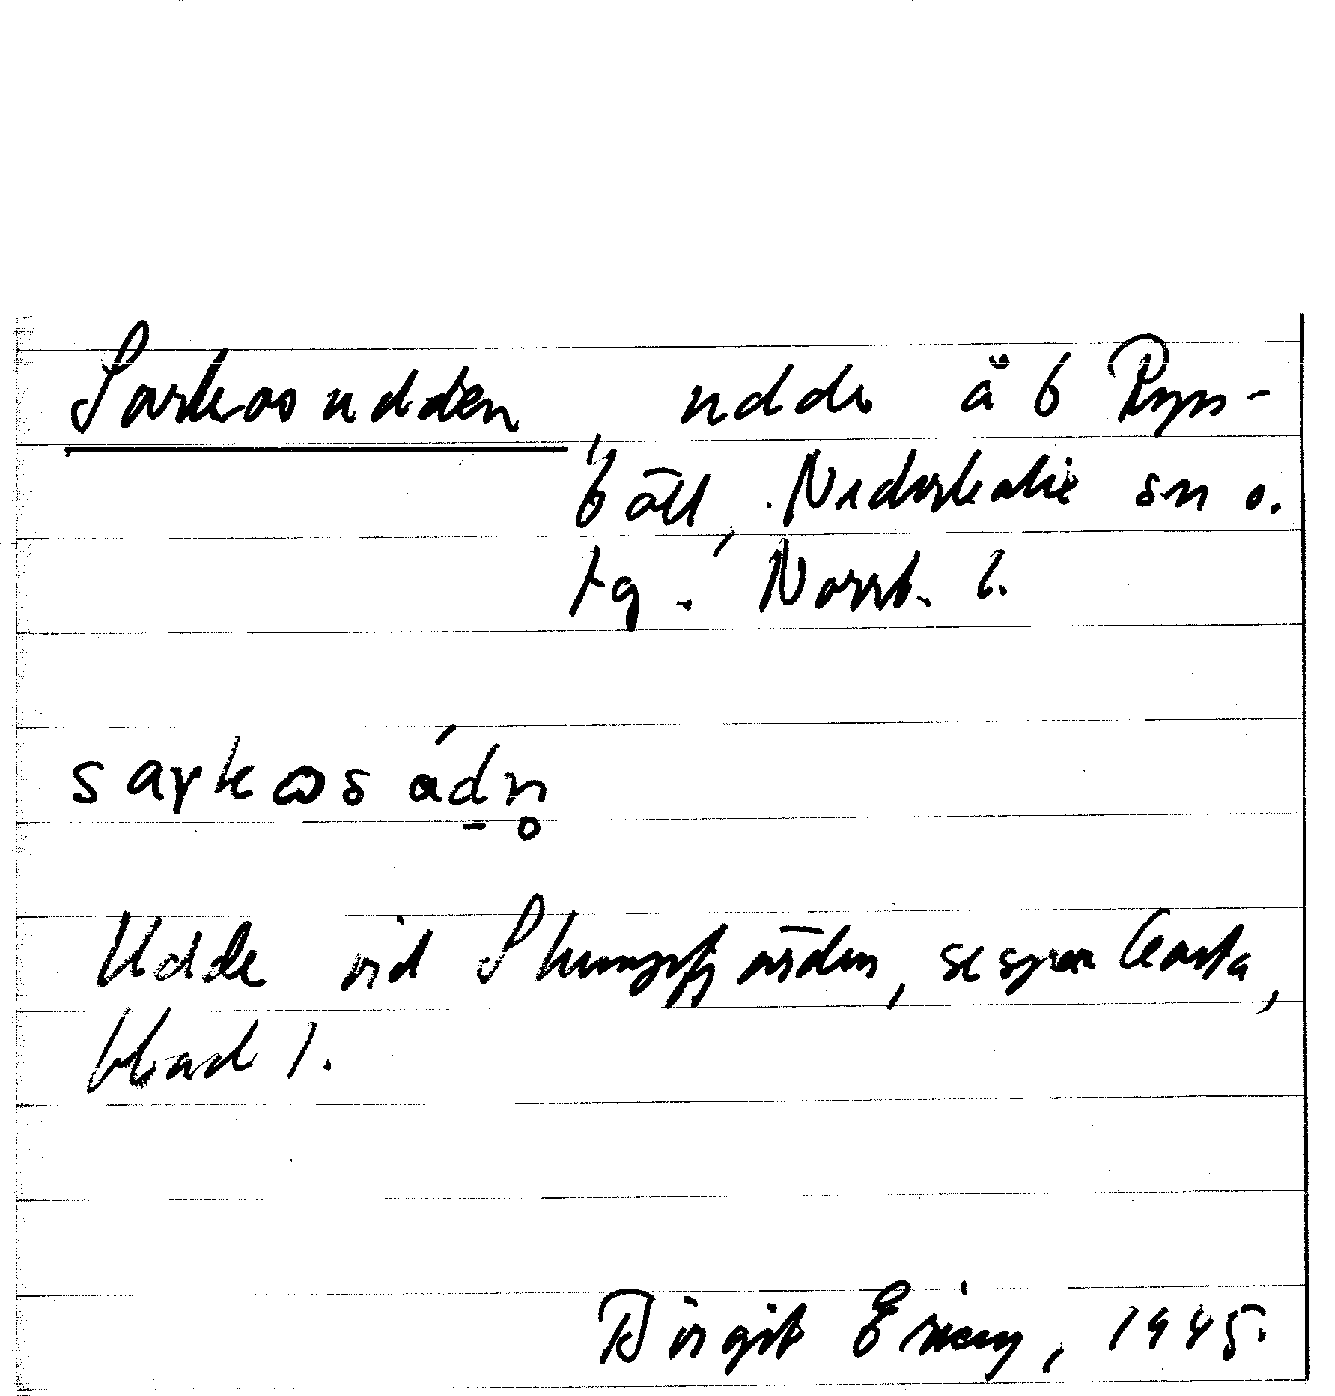 Sarkasudden, udde å b Ryss-
bält, Nederkalix sn o.
tg. Norrb. l.
sarkasádn̥
Udde vid Skumpfjärden, se span karta,
blad 1.
Birgit Ericz, 1945.